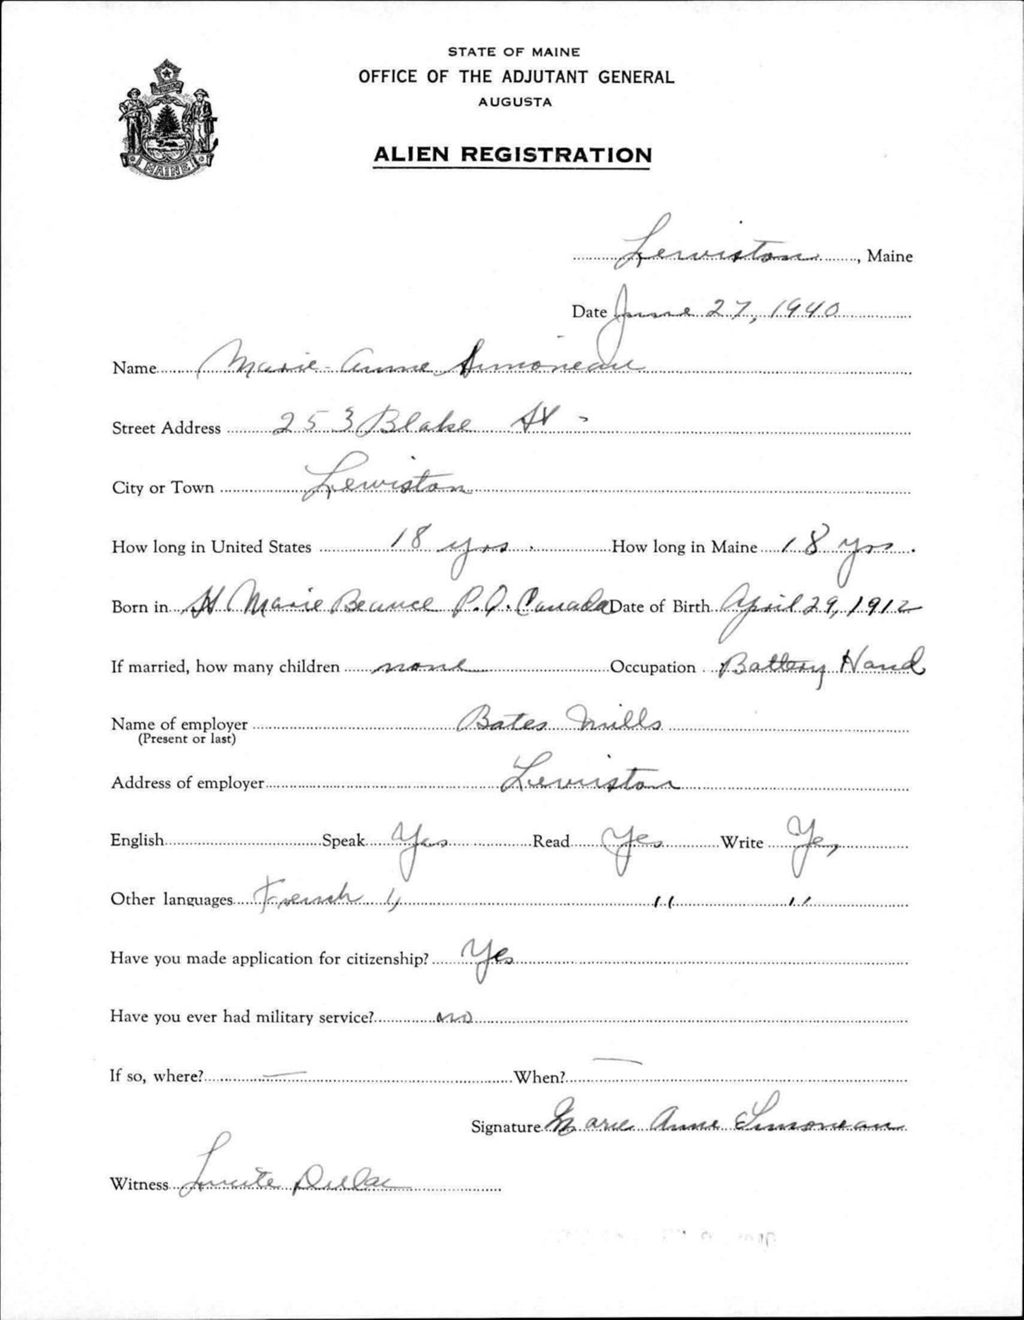 STATE OF MAINE
OFFICE OF THE ADJUTANT GENERAL
AUGUSTA
ALIEN REGISTRATION
MAINE
Lewiston, Maine
Date June 27, 1940
Name Marie-Anne Simoneau
Street Address 253 Blake St -
City or Town Lewiston
How long in United States 18 yrs. How long in Maine 18 yrs.
Born in St Marie Beauce P.Q. Canada Date of Birth April 29, 1912
If married, how many children none Occupation Battery Hand
Name of employer Bates Mills
(Present or last)
Address of employer Lewiston
English Speak Yes Read Yes Write Yes
Other languages French " " "
Have you made application for citizenship? Yes
Have you ever had military service? no
If so, where? — When? —
Signature Marie Anne Simoneau
Witness